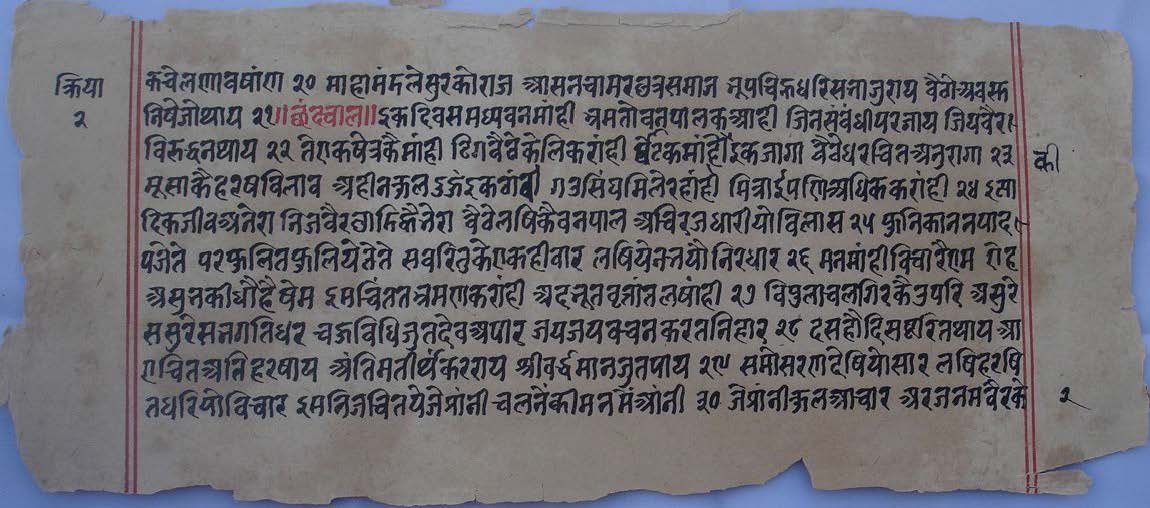 क्रिया
२
कचेलणावषांण २० माहामंडलेसुरकोराज आसनचामरछत्रसमाज नूपचिकधरिसनाजुराय वैगेअवस
नियेजोथाय २१॥छंदचाल॥इकदिवसमध्यवनमांही भ्रमतौवनपालकआही जिनसंबंधीपरजाय जियवैर
विरुद्धनथाय २२ तेएकषेत्रकैमांही ढिगवैठेकेलिकरांही इकजागा वैवैधरचितअनुरागा २३
की
मूसाकैहरषविलाव अहीनकलइकठांवी गउसिंघमिलेरहांही मित्राईपणिअधिककरांही २४ इत्या
दिकजीवअनेरा निजवैरछाडिकैनेरा वैठेलषिकैवनपाल अचिरजधारीयोविलास २५ फुनिकाननपाद
पजेते परफुलितफुलियेतेते सबरितुकेएकहीवार लषियेनन्नयौनिरधार २६ मनमांहीविचारैएम एह
असुनकीधौहैषेम इमचिंततभ्रमणकरांही अदनूतवृतांतलषांही २७ विपुलाचलगिरकैउपरि असुरे
ससुरेसनगतिधर चऊविधिजुतदेवअपार जयजयवचनकरतनिहार २८ दसहौदिसपूरितथाय आ
एचितअतिहरषाय अंतिमतीर्थंकरराय श्रीवर्द्धमानजुतपाय २९ समोसरणदेषियोसार लषिहरषि
तधरियोविचार इमनिजचितयेजेप्रांनी चलनेकीमनमंआंनी ३० जेप्रांनीकुलआचार अरजनमवैरके
२